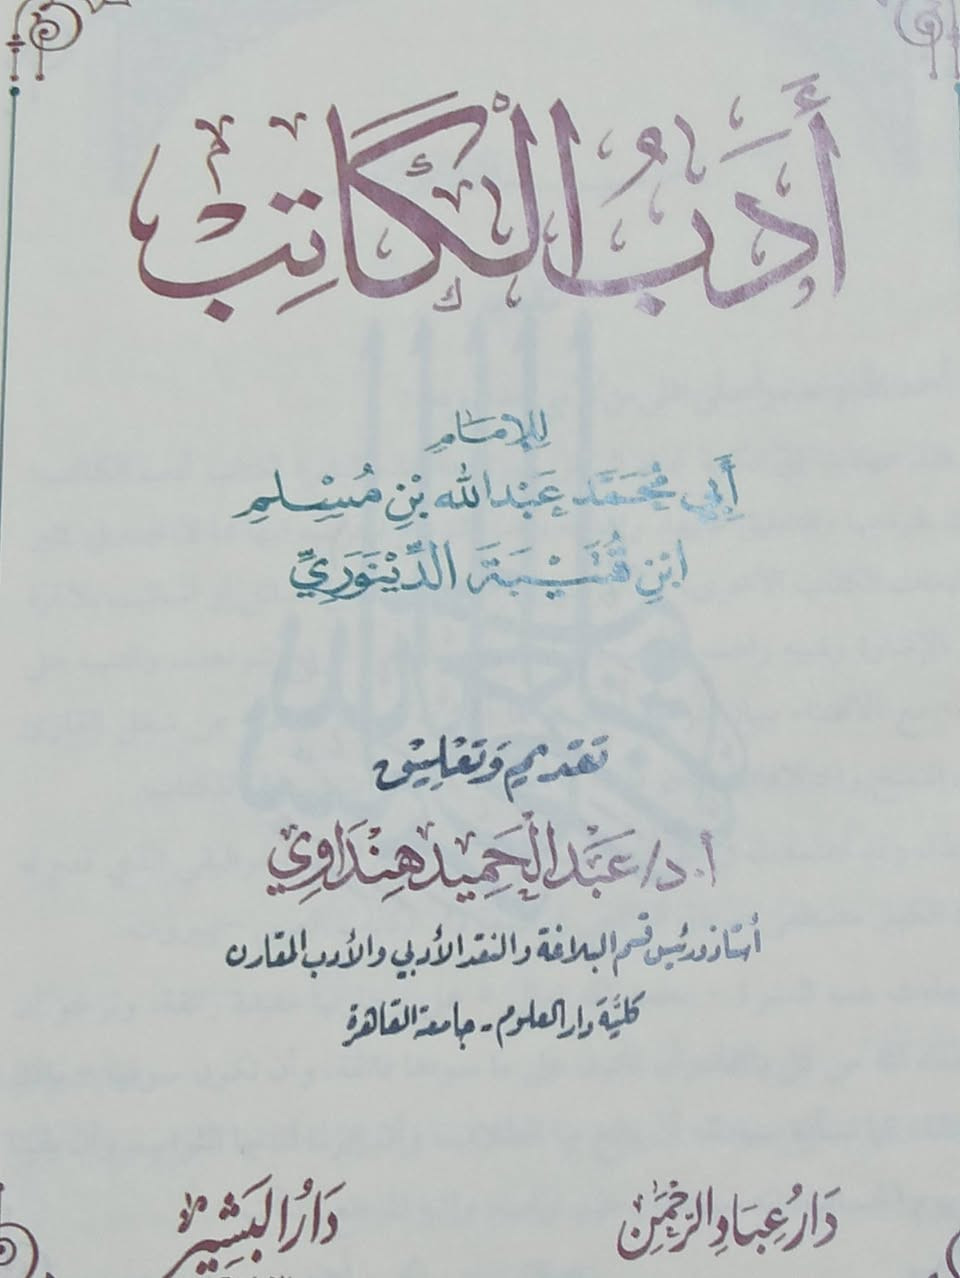 أَدَبُ الْكَاتِبْ
لِلإِمَامِ
أَبِي مُحَمَّد عَبْدالله بْنِ مُسْلِم
ابْنِ قُتَيْبَةَ الدِّيْنَوَرِيِّ
تقديم وَتَعْلِيق
أ.د/ عَبْدالْحَمِيد هِنْدَاوِي
أستاذ ورئيس قسم البلاغة والنقد الأدبي والأدب المقارن
كليَّة دار العلوم - جامعة القاهرة
دَارُ عِبَادِ الرَّحْمٰنِ
دَارُ الْبَشِير